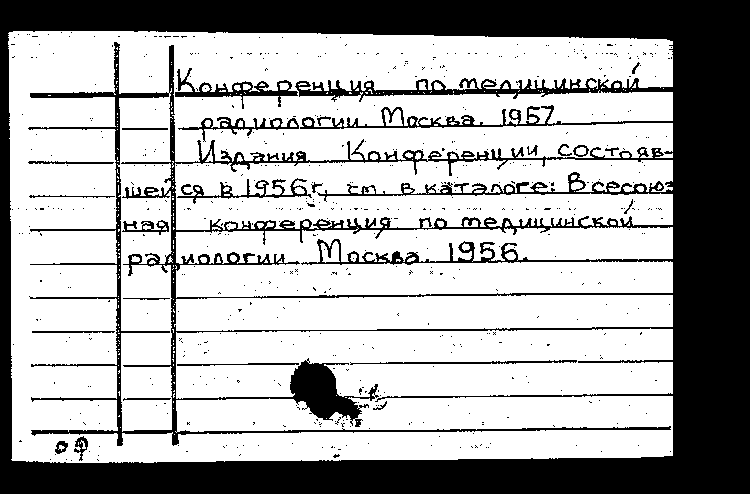 Конференция по медицинской
радиологии. Москва. 1957.
Издания Конференции, состояв-
шейся в 1956г, см. в каталоге: Всесоюз
ная конференция по медицинской
радиологии. Москва. 1956.
оф